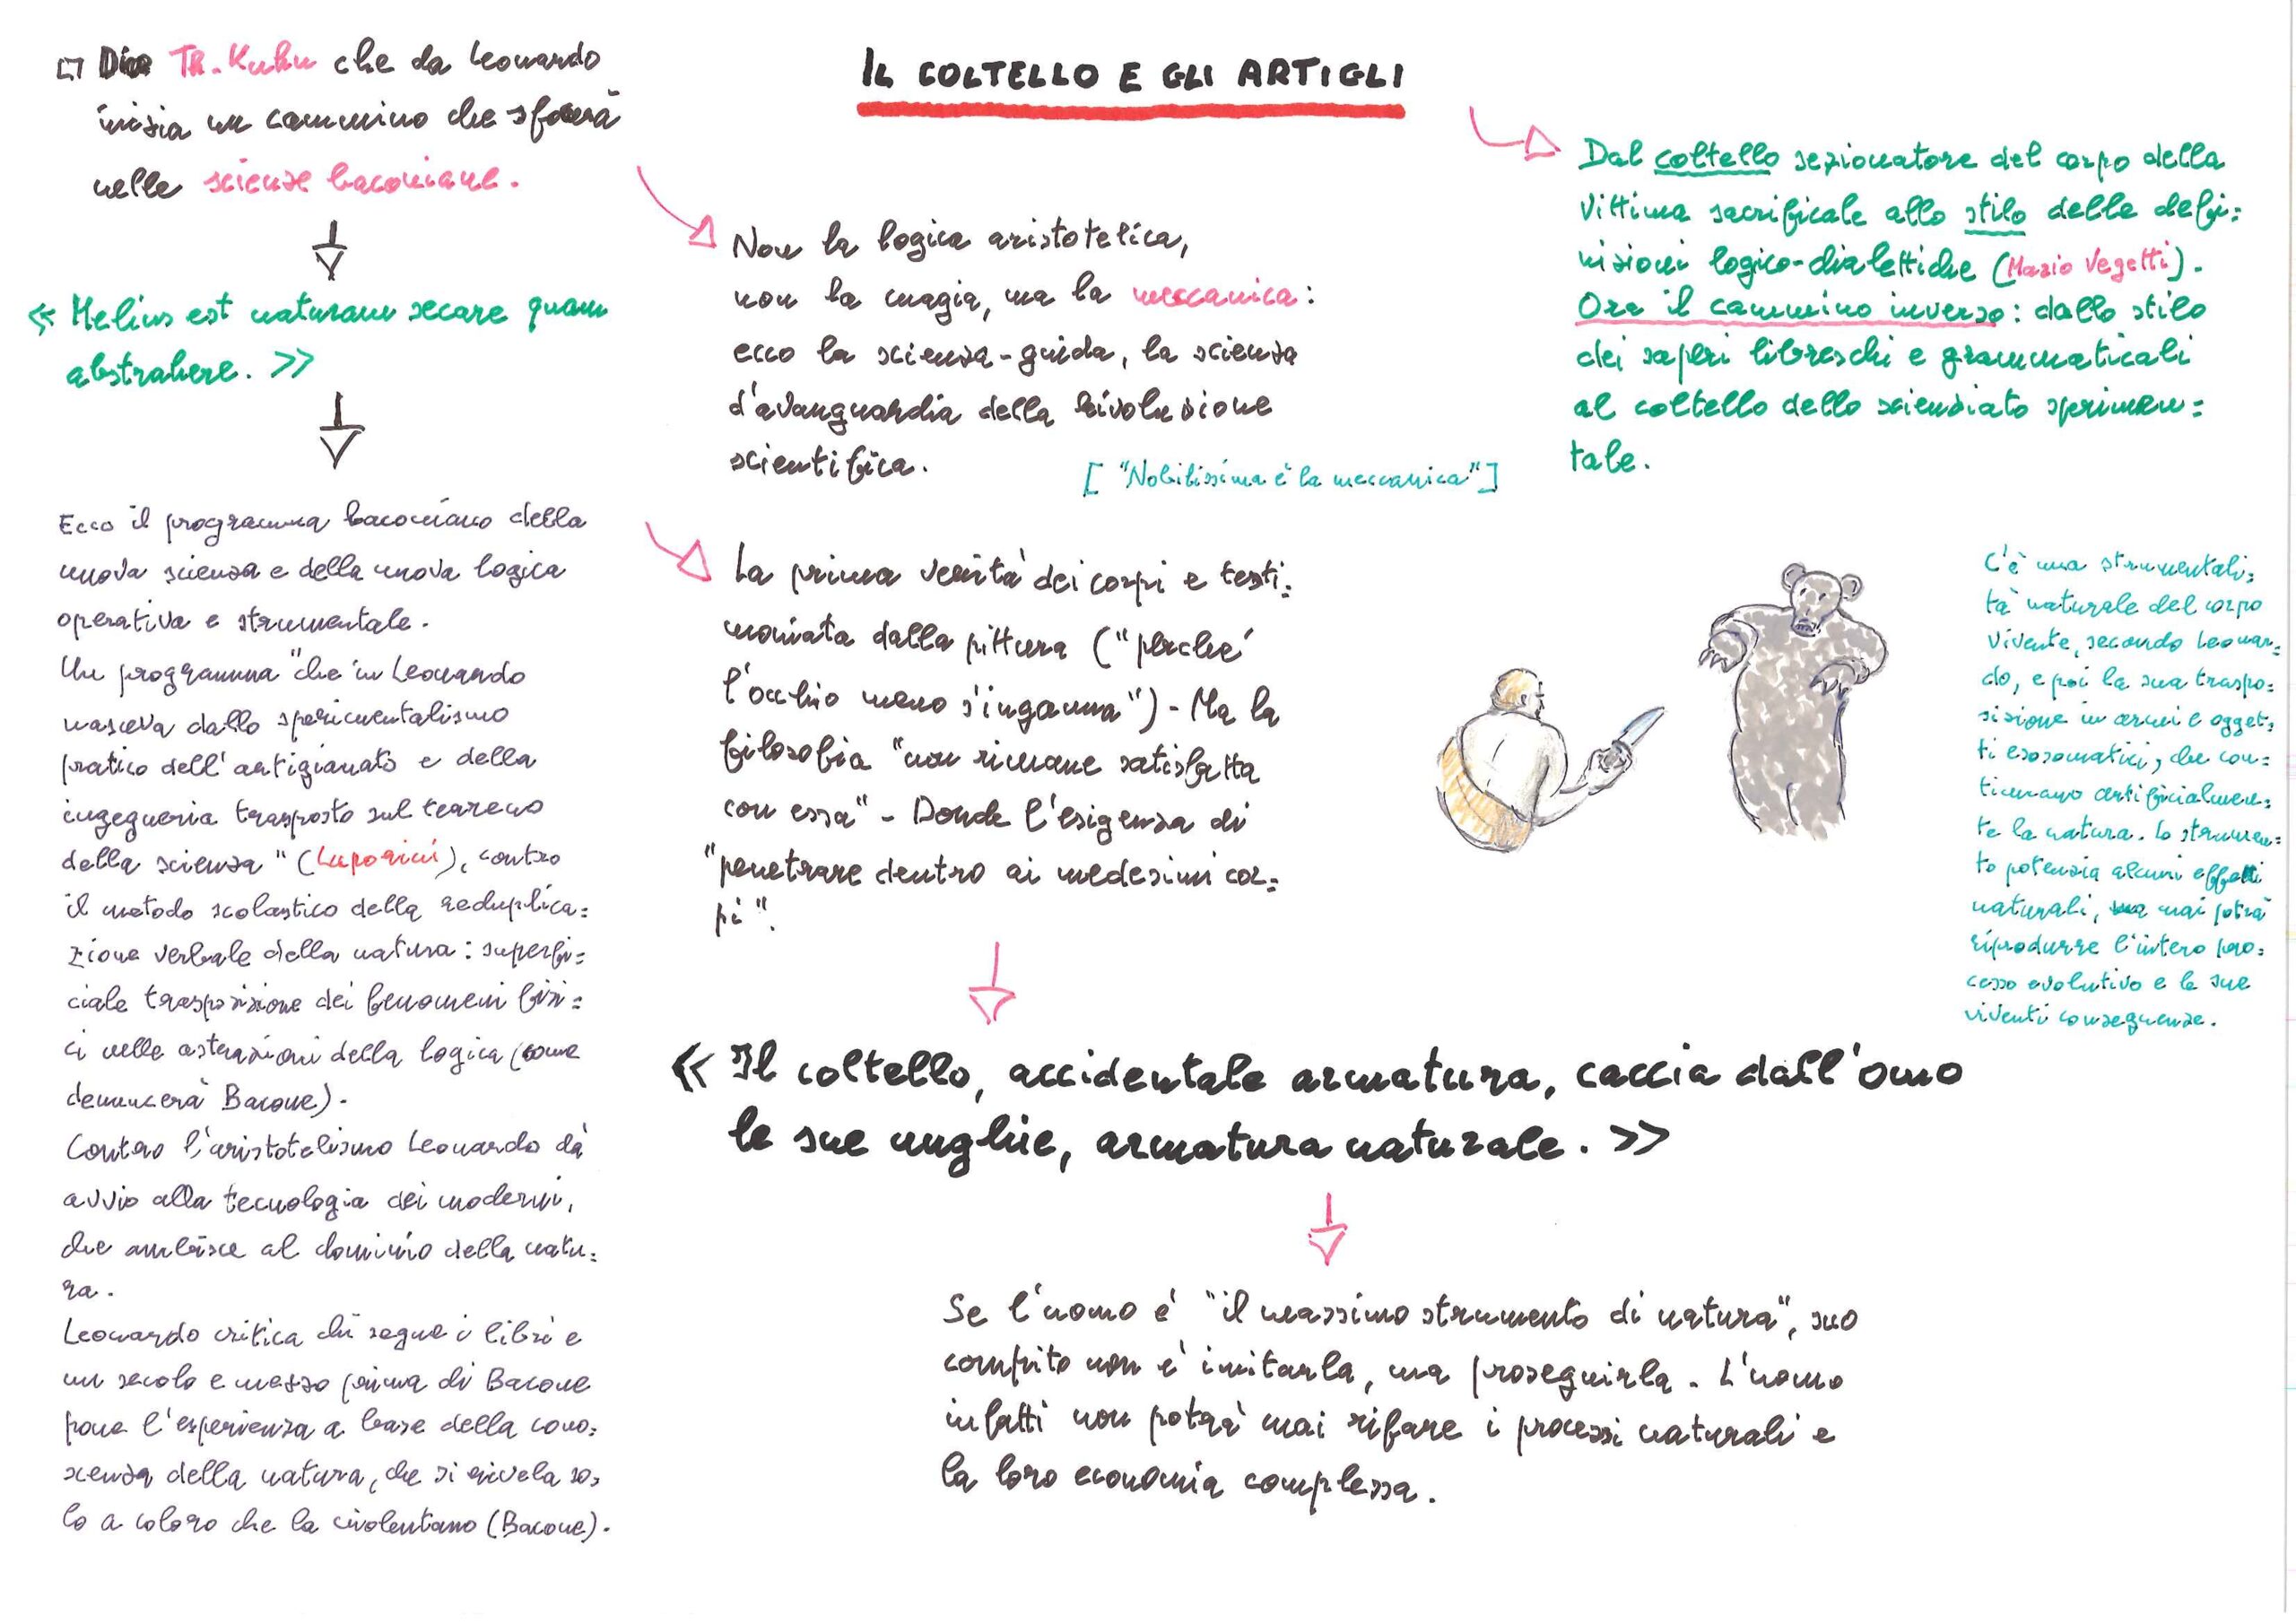 IL COLTELLO E GLI ARTIGLI
□ Dice Th. Kuhn che da Leonardo
inizia un cammino che sfocerà
nelle scienze baconiane.
« Melius est naturam secare quam
abstrahere. »
Ecco il programma baconiano della
nuova scienza e della nuova logica
operativa e strumentale.
Un programma "che in Leonardo
nasceva dallo sperimentalismo
pratico dell'artigianato e della
ingegneria trasposto sul terreno
della scienza" (Luporini), contro
il metodo scolastico della reduplica=
zione verbale della natura: superfi=
ciale trasposizione dei fenomeni fisi=
ci nelle astrazioni della logica (come
denuncerà Bacone).
Contro l'aristotelismo Leonardo dà
avvio alla tecnologia dei moderni,
che ambisce al dominio della natu=
ra.
Leonardo critica chi segue i libri e
un secolo e mezzo prima di Bacone
pone l'esperienza a base della cono=
scenza della natura, che si rivela so=
lo a coloro che la violentano (Bacone).
Non la logica aristotelica,
non la magia, ma la meccanica:
ecco la scienza-guida, la scienza
d'avanguardia della rivoluzione
scientifica.
["Nobilissima è la meccanica"]
La prima verità dei corpi è testi=
moniata dalla pittura ("perché
l'occhio meno s'inganna") - Ma la
filosofia "non rimane satisfatta
con essa" - Donde l'esigenza di
"penetrare dentro ai medesimi cor=
pi".
« Il coltello, accidentale armatura, caccia dall'omo
le sue unghie, armatura naturale. »
Se l'uomo è "il massimo strumento di natura", suo
compito non è imitarla, ma proseguirla. L'uomo
infatti non potrà mai rifare i processi naturali e
la loro economia complessa.
Dal coltello sezionatore del corpo della
vittima sacrificale allo stilo delle defi=
nizioni logico-dialettiche (Mario Vegetti).
Ora il cammino inverso: dallo stilo
dei saperi libreschi e grammaticali
al coltello dello scienziato sperimen=
tale.
C'è una strumentali=
tà naturale del corpo
vivente, secondo Leonar=
do, e poi la sua traspo=
sizione in armi e ogget=
ti esosomatici, che con=
tinuano artificialmen=
te la natura. Lo strumen=
to potenzia alcuni effetti
naturali, ma mai potrà
riprodurre l'intero pro=
cesso evolutivo e le sue
viventi conseguenze.